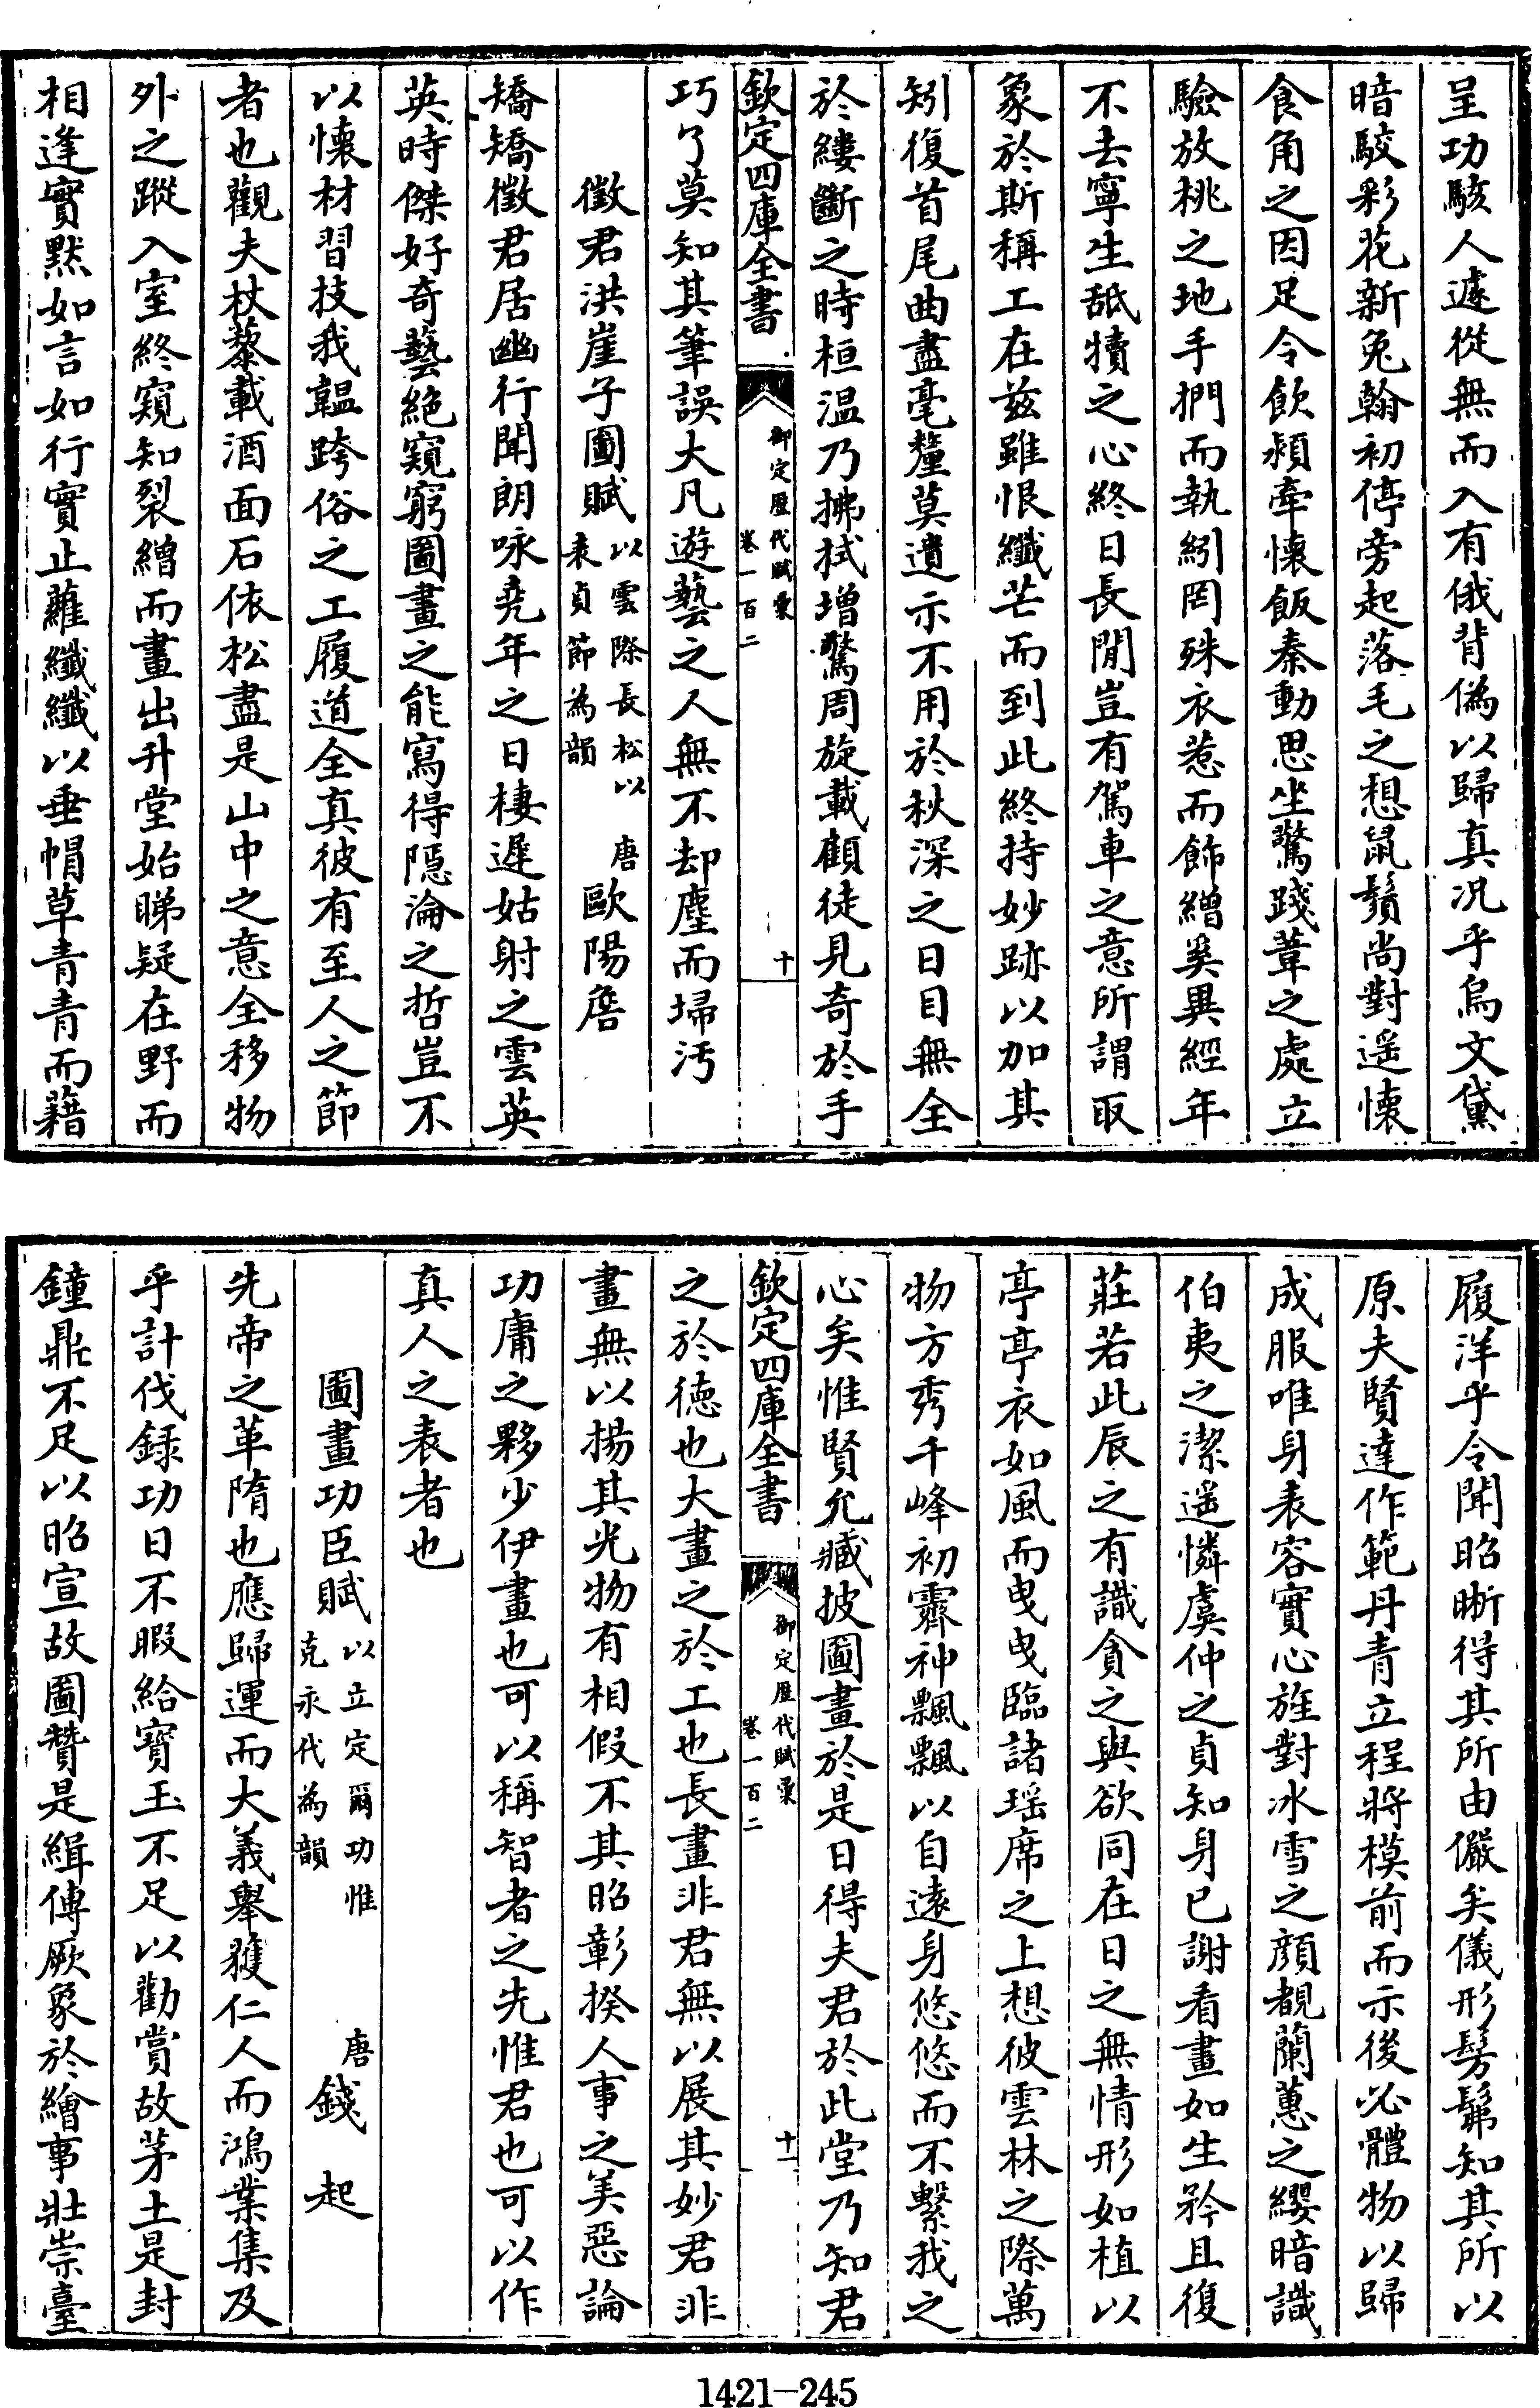 呈功駭人遽從無而入有俄背偽以歸真况乎烏文黛
暗駮彩花新兔翰初停旁起落毛之想鼠鬚尚對遥懷
食角之因足令飲潁牽懷飯秦動思坐驚踐葦之處立
驗放桃之地手捫而執紖罔殊衣惹而飾繒奚異經年
不去寧生舐犢之心終日長閒豈有駕車之意所謂取
象於斯稱工在兹雖恨纖芒而到此終持妙跡以加其
矧復首尾曲盡毫釐莫遺示不用於秋深之日目無全
於縷斷之時桓温乃拂拭增驚周旋載顧徒見奇於手
欽定四庫全書
御定歷代賦彙
卷一百二
十
巧了莫知其筆誤大凡遊藝之人無不却塵而埽汚
徵君洪崖子圖賦
以雲際長松以
表貞節為韻
唐
歐陽詹
矯矯徵君居幽行聞朗咏堯年之日棲遲姑射之雲英
英時傑好奇藝絶窺窮圖畫之能寫得隱淪之哲豈不
以懷材習技我韞跨俗之工履道全真彼有至人之節
者也觀夫杖藜載酒面石依松盡是山中之意全移物
外之蹤入室終窺知裂繒而畫出升堂始睇疑在野而
相逢實默如言如行實止蘿纖纖以垂帽草青青而藉
履洋乎令聞昭晣得其所由儼矣儀形髣髴知其所以
原夫賢達作範丹青立程將模前而示後必體物以歸
成服唯身表容實心旌對冰雪之顔覩蘭蕙之纓暗識
伯夷之潔遥憐虞仲之貞知身已謝看畫如生矜且復
莊若此辰之有識貪之與欲同在日之無情形如植以
亭亭衣如風而曳曳臨諸瑶席之上想彼雲林之際萬
物方秀千峰初霽神飄飄以自遠身悠悠而不繫我之
心矣惟賢允臧披圖畫於是日得夫君於此堂乃知君
欽定四庫全書
御定歷代賦彙
卷一百二
十一
之於德也大畫之於工也長畫非君無以展其妙君非
畫無以揚其光物有相假不其昭彰揆人事之美惡論
功庸之夥少伊畫也可以稱智者之先惟君也可以作
真人之表者也
圖畫功臣賦
以立定爾功惟
克永代為韻
唐
錢起
先帝之革隋也應歸運而大義舉獲仁人而鴻業集及
乎計伐録功日不暇給寳玉不足以勸賞故茅土是封
鐘鼎不足以昭宣故圖贊是緝傳厥象於繪事壯崇臺
1421-245